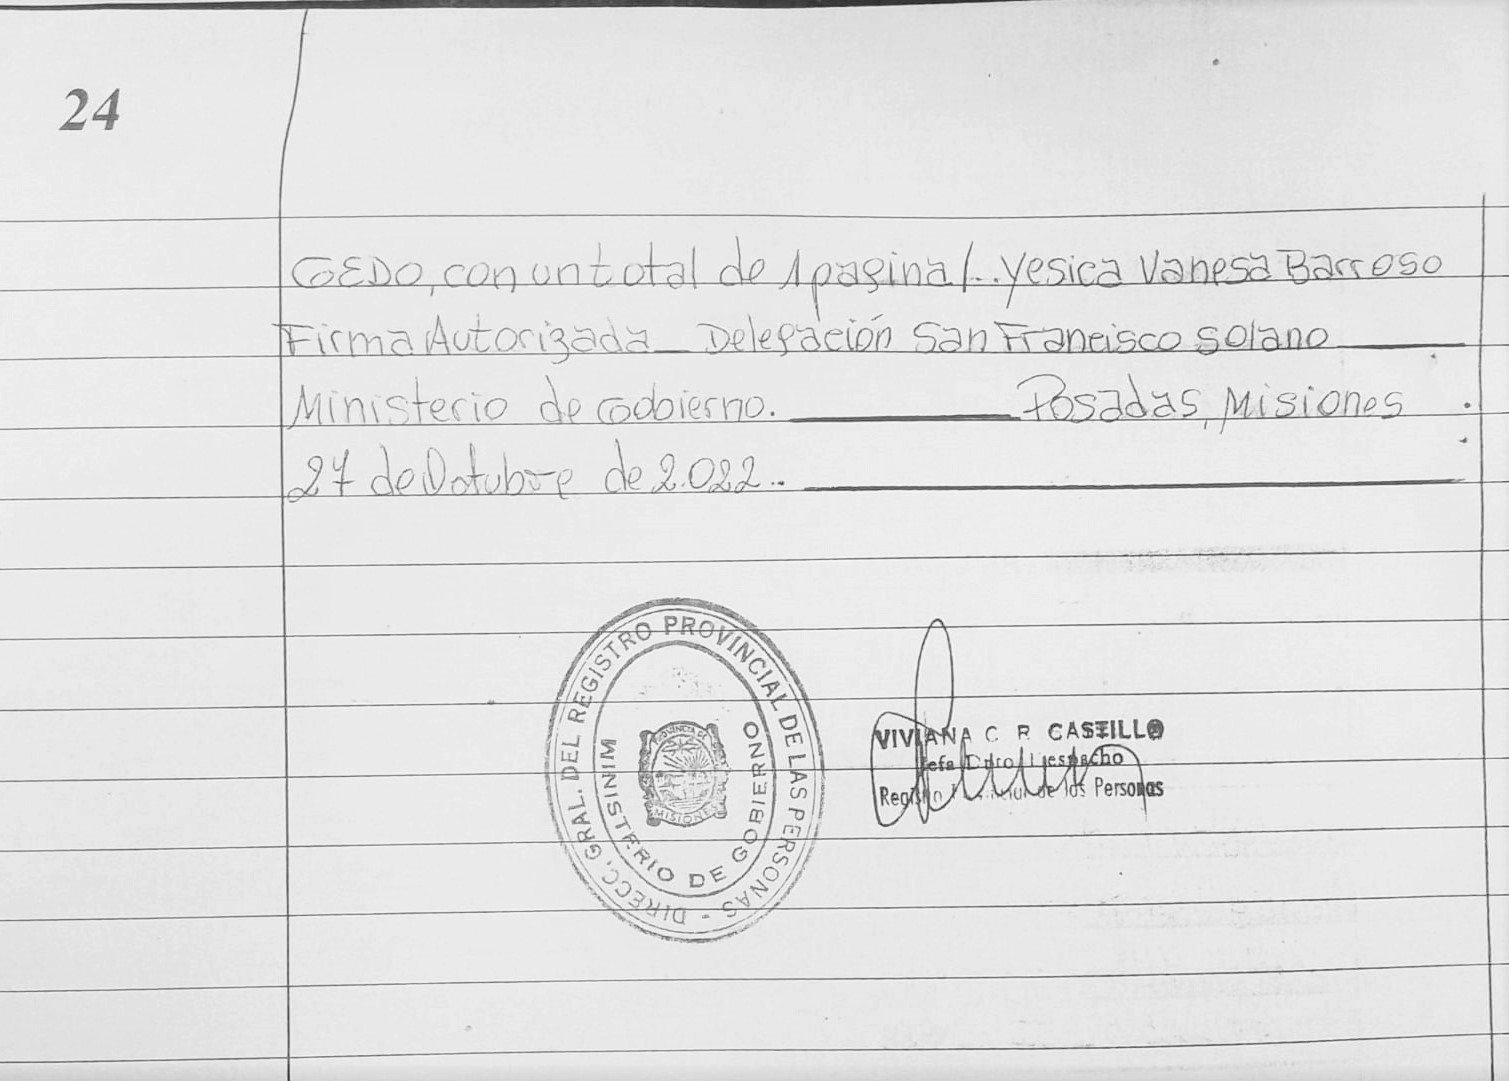 24
GEDO, con un total de 1 pagina/.. Yesica Vanesa Barroso
Firma Autorizada Delegación San Francisco Solano
Ministerio de Gobierno. Posadas, Misiones
27 de Octubre de 2.022..
DIRECC. GRAL. DEL REGISTRO PROVINCIAL DE LAS PERSONAS -
MINISTERIO DE GOBIERNO
PROVINCIA DE
MISIONES
VIVIANA C R CASTILLO
Jefe Dpto Despacho
Registro de las Personas